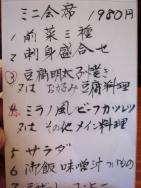 ミニ会席 1980円
1 前菜三種
2 刺身盛合せ
③ 豆腐明太子巻き
又は お好み豆腐料理
4. ミラノ風ビーフカツレツ
又は その他メイン料理
5 サラダ
6 御飯 味噌汁 つけもの
7 デザート コーヒー